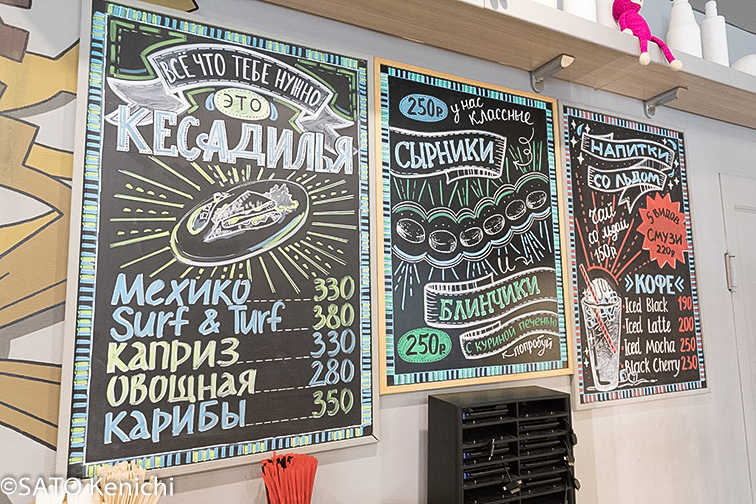 ВСЕ ЧТО ТЕБЕ НУЖНО
ЭТО
КЕСАДИЛЬЯ
Мехико 330
Surf & Turf 380
Каприз 330
Овощная 280
Карибы 350
250р
у нас классные
СЫРНИКИ
и
БЛИНЧИКИ
с куриной печенью
250р
попробуй
НАПИТКИ
СО ЛЬДОМ
Чай
со льдом
150р
5 видов
Смузи
220р
»КОФЕ«
Iced Black 190
Iced Latte 200
Iced Mocha 250
Black Cherry 230
©SATO Kenichi